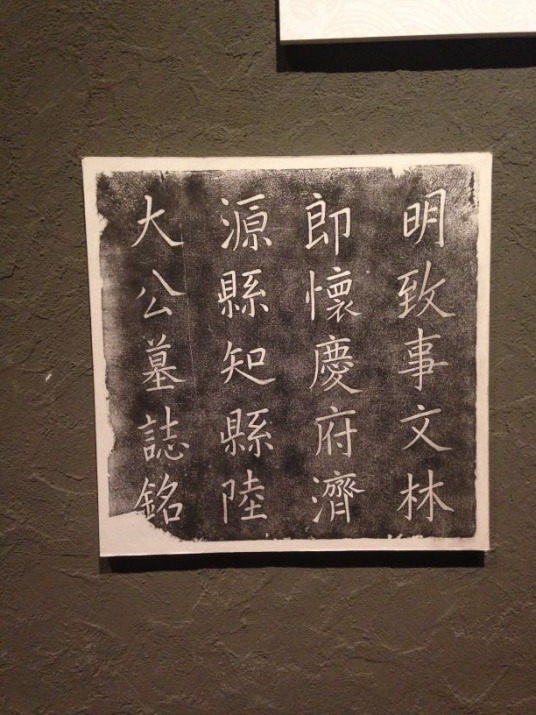 明致事文林
即懷慶府濟
源縣知縣陸
大公墓誌銘